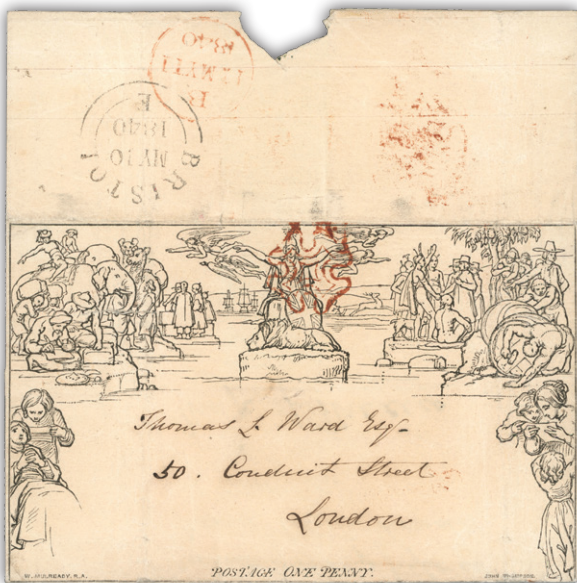 1840
MY 11
BRISTOL
MY 10
1840
E
Thomas L Ward Esqr
50. Conduit Street
London
W. MULREADY. R.A.
POSTAGE ONE PENNY.
JOHN THOMPSON.